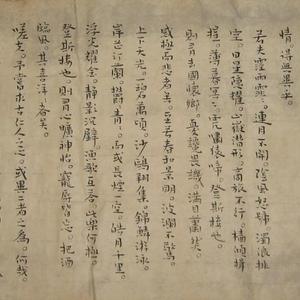 情得無異乎
若夫霪雨霏〻連月不開陰風怒號濁浪排
空日星隱耀山嶽潛形商旅不行檣傾楫
摧薄暮冥〻虎嘯猿啼登斯樓也
則有去國懷鄉憂讒畏譏滿目蕭然
感極而悲者矣至若春和景明波瀾不驚
上下天光一碧萬頃沙鷗翔集錦鱗游泳
岸芷汀蘭鬱〻青〻而或長煙一空皓月千里
浮光耀金靜影沉璧漁歌互答此樂何極
登斯樓也則有心曠神怡寵辱皆忘把酒
臨風其喜洋〻者矣
嗟夫予嘗求古仁人之心或異二者之為何哉